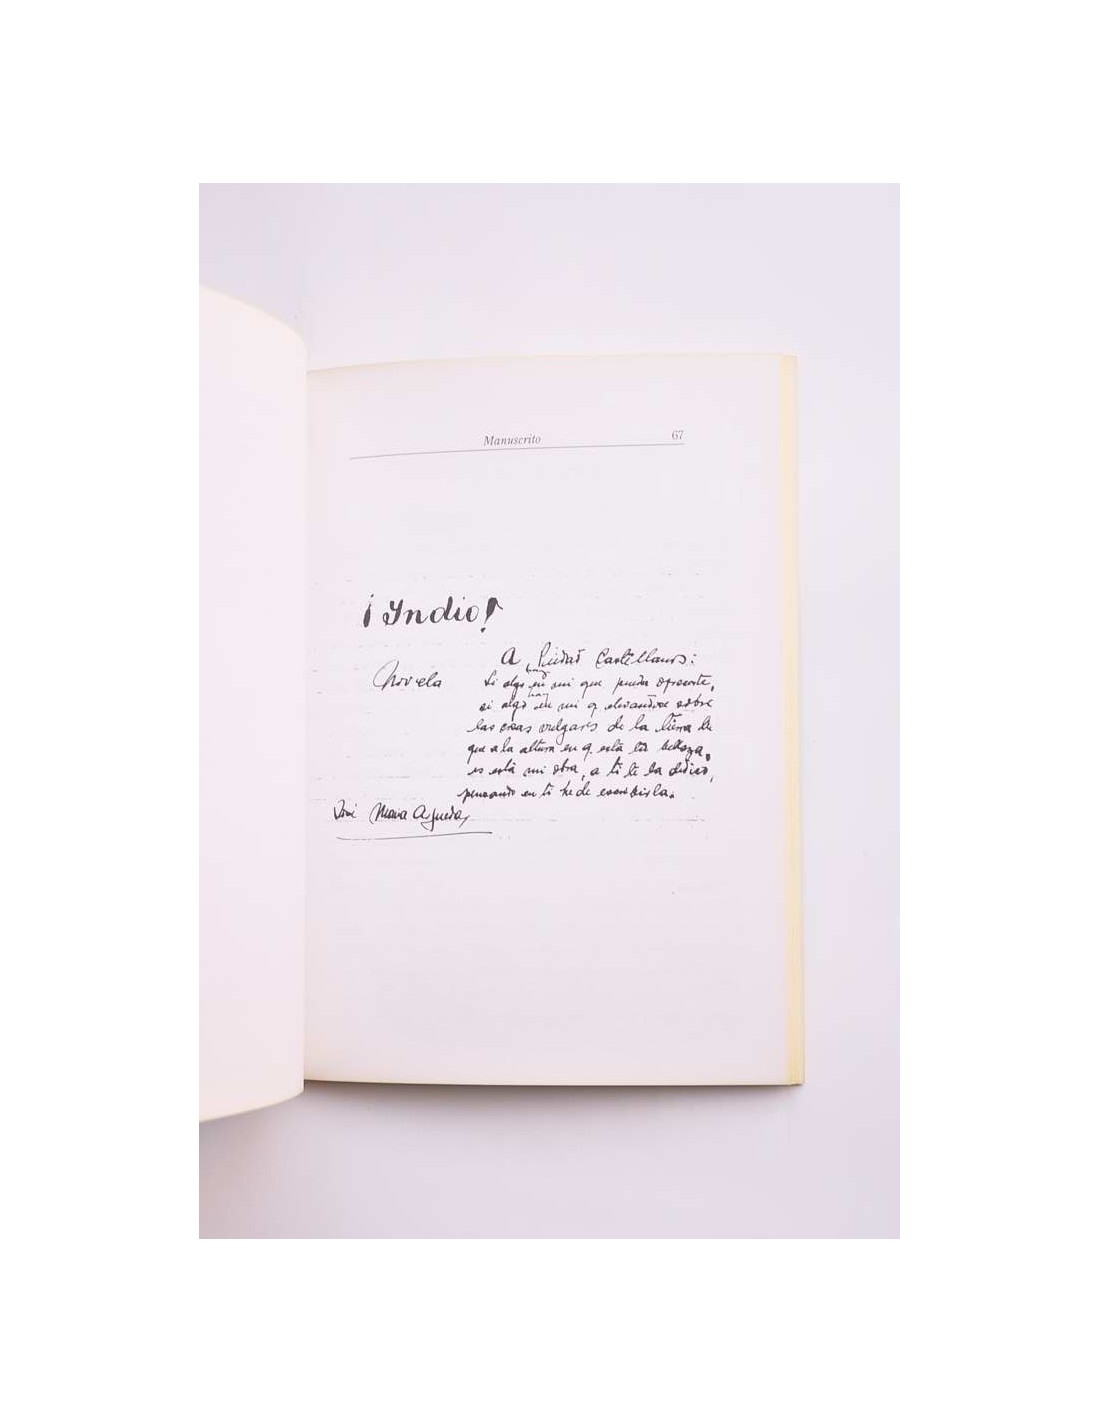 Manuscrito 67
¡Indio!
Novela
A Piedad Castellanos:
Si algo hay en mi que pueda ofrecerte,
si algo hay en mi q elevandose sobre
las cosas vulgares de la tierra
que a la altura en q. está la belleza,
es está mi obra, a ti te la dedico,
pensando en ti he de escribirla.
José Maria Arguedas